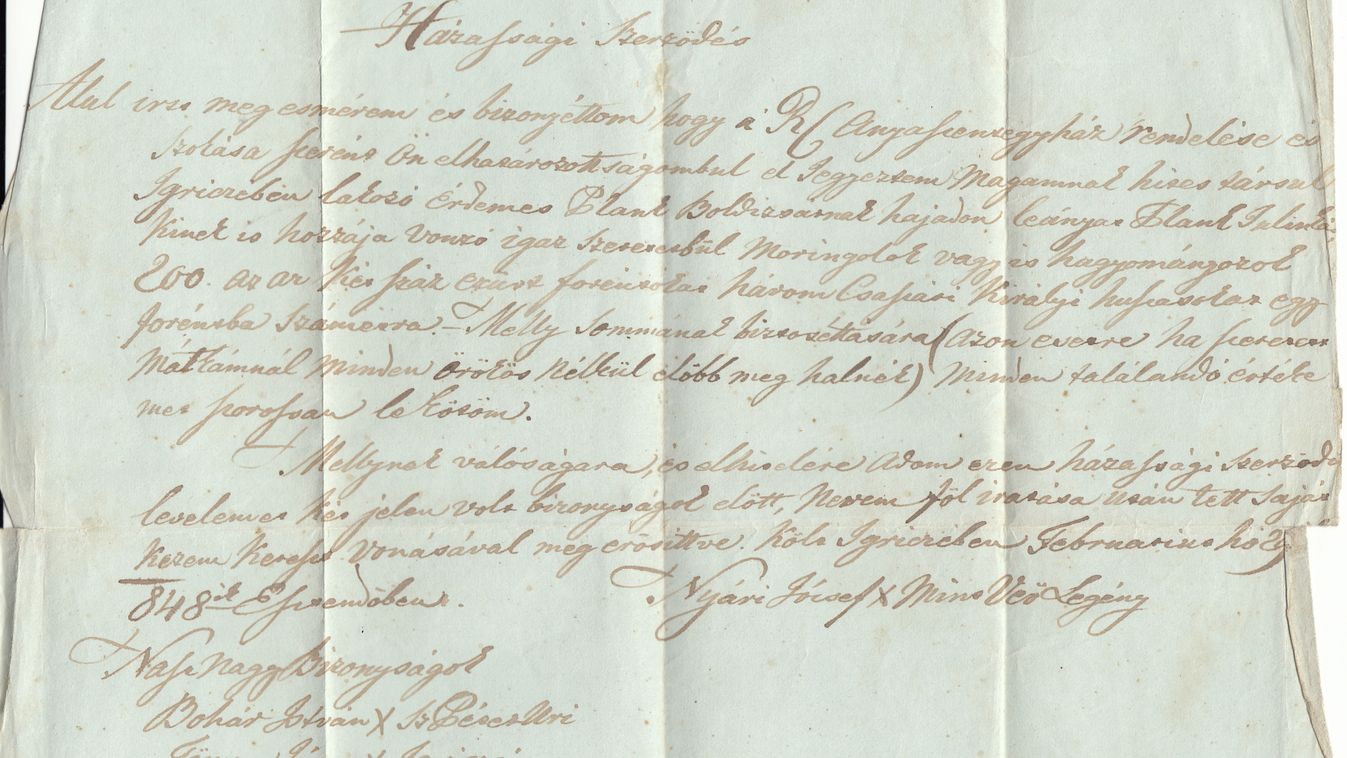 Házassági Szerződés
Alul irt meg esmérem és bizonyéttom hogy á R( Anyaszentegyház rendelése és
szokása szerént Ön elhatározottságombul el Jegyeztem Magamnak hites társul
Igriczében lakozó érdemes Plank Boldizsarnak hajadon leányat Plank Julinkát
kinek is hozzája vonzó igaz szeretetbül Moringolok vagy is hagyományozok
200. az az Két száz ezüst forintokat három Császári Királyi huszasokat egy
foréntba számittva. Melly Sommának biztosétására (azon esetre ha szeretett
Mátkámnál minden örökös nélkül előbb meg halnék) Minden találandó értéke
met szorossan le kötöm.
Mellynek válóságara, és elhitelére adom ezen házassági szerződés
levelemet két jelen volt bizonyságok előtt, Nevem föl iratása után tett saját
kezem kereszt vonásával meg erősittve. Költ Igriczében Februarius hó 29
848ik Esztendőben.
Nyári József X Mint Vöő Legény
Nász Nagy Bizonyságok
Bohár István X Sz Péter Uri